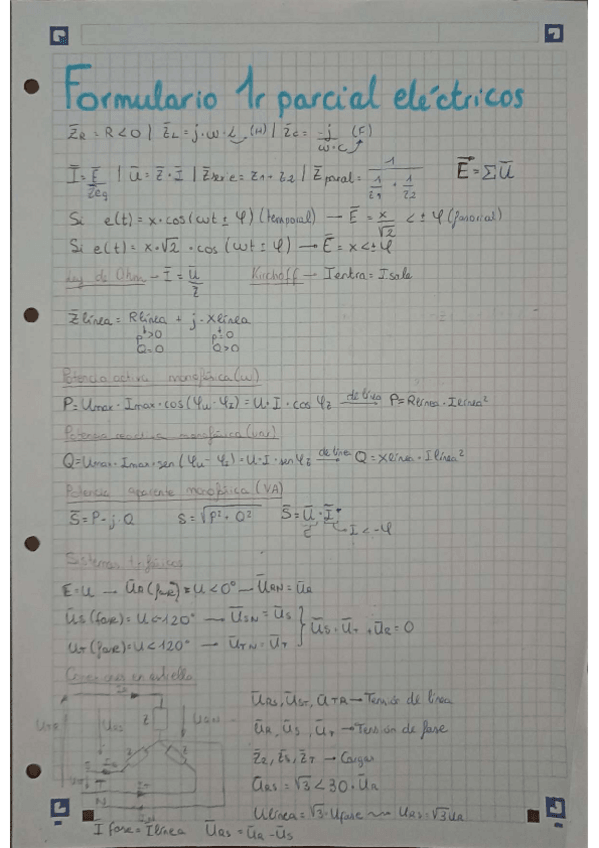 Formulario 1r parcial eléctricos
Z̄R = R∠0 | Z̄L = j·ω·L (H) | Z̄C = -j/(ω·C) (F)
Ī = Ē/Z̄eq | ū = z̄·Ī | Z̄serie = Z1+Z2 | Z̄paral = 1/(1/Z1 + 1/Z2) Ē = ΣŪ
Si e(t) = x·cos(ωt ± φ) (temporal) → Ē = x/√2 ∠±φ (fasorial)
Si e(t) = x·√2·cos(ωt ± φ) → Ē = x∠±φ
Ley de Ohm → Ī = Ū/Z̄ Kirchoff → Ientra = I.sale
Z̄línea = Rlínea + j·Xlínea
P>0 P=0
Q=0 Q>0
Potencia activa monofásica (W)
P = Umax·Imax·cos(φu-φz) = U·I·cos φz de línea → P = Rlínea·Ilínea²
Potencia reactiva monofásica (var)
Q = Umax·Imax·sen(φu-φz) = U·I·sen φz de línea → Q = Xlínea·Ilínea²
Potencia aparente monofásica (VA)
S̄ = P + j·Q S = √(P²+Q²) S̄ = Ū·Ī*
I∠-φ
Sistemas trifásicos
E = U → ŪR (fase) = U∠0° → ŪRN = ŪR
ŪS (fase) = U∠-120° → ŪSN = ŪS
ŪT (fase) = U∠120° → ŪTN = ŪT
ŪS + ŪT + ŪR = 0
Conexiones en estrella
ŪRS, ŪST, ŪTR → Tensión de línea
ŪR, ŪS, ŪT → Tensión de fase
Z̄R, Z̄S, Z̄T → Cargas
ŪRS = √3∠30·ŪR
Ulínea = √3·Ufase → URS = √3UR
Z
Z
Z
URN
S
T
N
Ī fase = Ī línea ŪRS = ŪR - ŪS